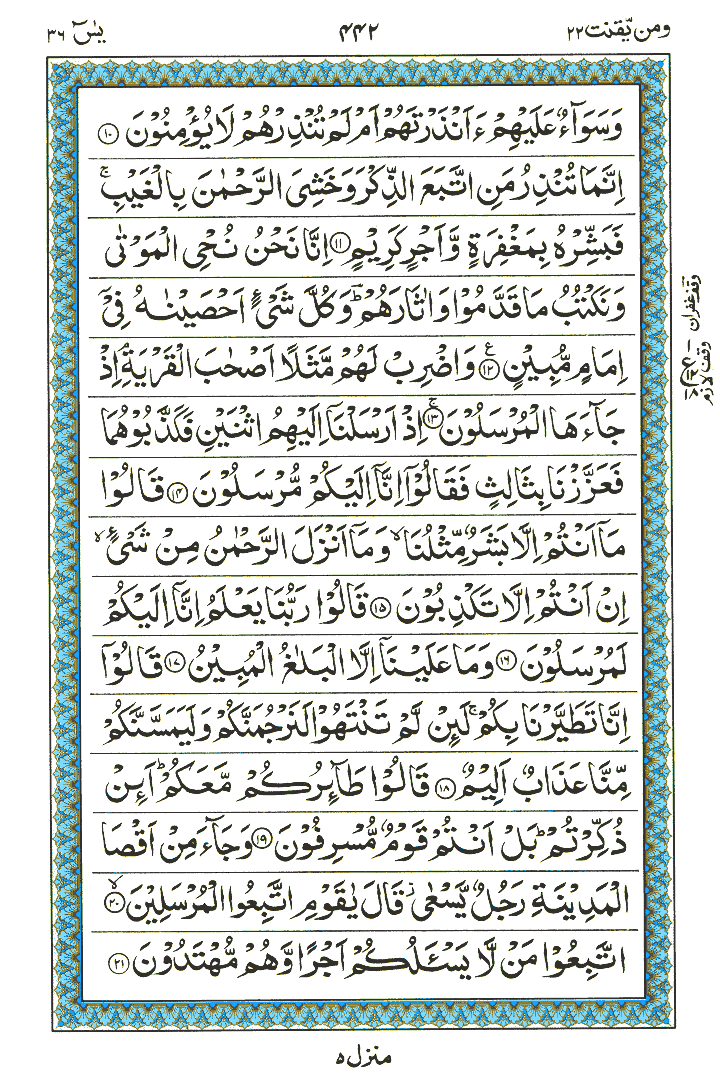 ومن يّقنت ٢٢
٤٤٢
يٰسٓ ٣٦
وَسَوَآءٌ عَلَيْهِمْ ءَاَنْذَرْتَهُمْ اَمْ لَمْ تُنْذِرْهُمْ لَا يُؤْمِنُوْنَ ﴿١٠﴾
اِنَّمَا تُنْذِرُ مَنِ اتَّبَعَ الذِّكْرَ وَخَشِىَ الرَّحْمٰنَ بِالْغَيْبِ ۚ
فَبَشِّرْهُ بِمَغْفِرَةٍ وَّاَجْرٍ كَرِيْمٍ ﴿١١﴾ اِنَّا نَحْنُ نُحْىِ الْمَوْتٰى
وَنَكْتُبُ مَا قَدَّمُوْا وَاٰثَارَهُمْ ؕ وَكُلَّ شَىْءٍ اَحْصَيْنٰهُ فِىْۤ
اِمَامٍ مُّبِيْنٍ ﴿١٢﴾ ع وَاضْرِبْ لَهُمْ مَّثَلًا اَصْحٰبَ الْقَرْيَةِ ۘ اِذْ
جَآءَهَا الْمُرْسَلُوْنَ ﴿١٣﴾ ۚ اِذْ اَرْسَلْنَاۤ اِلَيْهِمُ اثْنَيْنِ فَكَذَّبُوْهُمَا
فَعَزَّزْنَا بِثَالِثٍ فَقَالُوْۤا اِنَّاۤ اِلَيْكُمْ مُّرْسَلُوْنَ ﴿١٤﴾ قَالُوْا
مَاۤ اَنْتُمْ اِلَّا بَشَرٌ مِّثْلُنَا ۙ وَمَاۤ اَنْزَلَ الرَّحْمٰنُ مِنْ شَىْءٍ ۙ
اِنْ اَنْتُمْ اِلَّا تَكْذِبُوْنَ ﴿١٥﴾ قَالُوْا رَبُّنَا يَعْلَمُ اِنَّاۤ اِلَيْكُمْ
لَمُرْسَلُوْنَ ﴿١٦﴾ وَمَا عَلَيْنَاۤ اِلَّا الْبَلٰغُ الْمُبِيْنُ ﴿١٧﴾ قَالُوْۤا
اِنَّا تَطَيَّرْنَا بِكُمْ ۚ لَئِنْ لَّمْ تَنْتَهُوْا لَنَرْجُمَنَّكُمْ وَلَيَمَسَّنَّكُمْ
مِّنَّا عَذَابٌ اَلِيْمٌ ﴿١٨﴾ قَالُوْا طَآئِرُكُمْ مَّعَكُمْ ؕ اَئِنْ
ذُكِّرْتُمْ ؕ بَلْ اَنْتُمْ قَوْمٌ مُّسْرِفُوْنَ ﴿١٩﴾ وَجَآءَ مِنْ اَقْصَا
الْمَدِيْنَةِ رَجُلٌ يَّسْعٰى ز قَالَ يٰقَوْمِ اتَّبِعُوا الْمُرْسَلِيْنَ ﴿٢٠﴾ ۙ
اتَّبِعُوْا مَنْ لَّا يَسْئَلُكُمْ اَجْرًا وَّهُمْ مُّهْتَدُوْنَ ﴿٢١﴾
وقف غفران
وقف لازم
منزل ٥